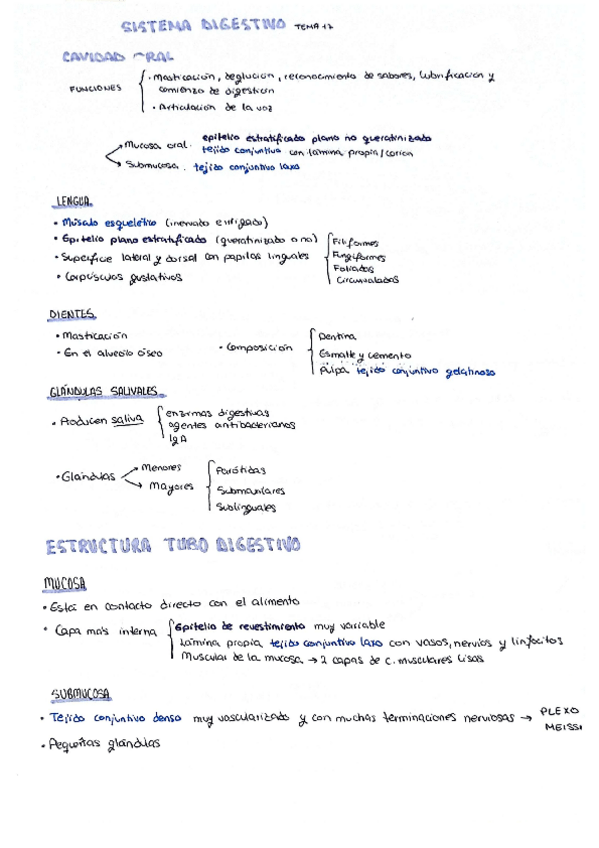 SISTEMA DIGESTIVO TEMA 17
CAVIDAD ORAL
FUNCIONES
· Masticación, deglución, reconocimiento de sabores, lubrificación y
comienzo de digestión
· Articulación de la voz
Mucosa oral. epitelio estratificado plano no queratinizado
tejido conjuntivo con lámina propia/corion
Submucosa. tejido conjuntivo laxo
LENGUA.
· Músculo esquelético (inervado e irrigado)
· Epitelio plano estratificado (queratinizado o no)
· Superficie lateral y dorsal con papilas linguales
Filiformes
Fungiformes
Foliadas
Circunvaladas
· Corpúsculos gustativos
DIENTES.
· Masticación
· En el alveolo óseo
· Composición
Dentina
Esmalte y cemento
Pulpa tejido conjuntivo gelatinoso
GLÁNDULAS SALIVALES.
· Producen saliva
enzimas digestivas
agentes antibacterianos
IgA
· Glándulas
Menores
Mayores
Parótidas
Submaxilares
Sublinguales
ESTRUCTURA TUBO DIGESTIVO
MUCOSA
· Está en contacto directo con el alimento
· Capa más interna
Epitelio de revestimiento muy variable
Lámina propia tejido conjuntivo laxo con vasos, nervios y linfocitos
Muscular de la mucosa → 2 capas de c. musculares lisas
SUBMUCOSA
· Tejido conjuntivo denso muy vascularizado y con muchas terminaciones nerviosas → PLEXO
MEISSI
· Pequeñas glándulas